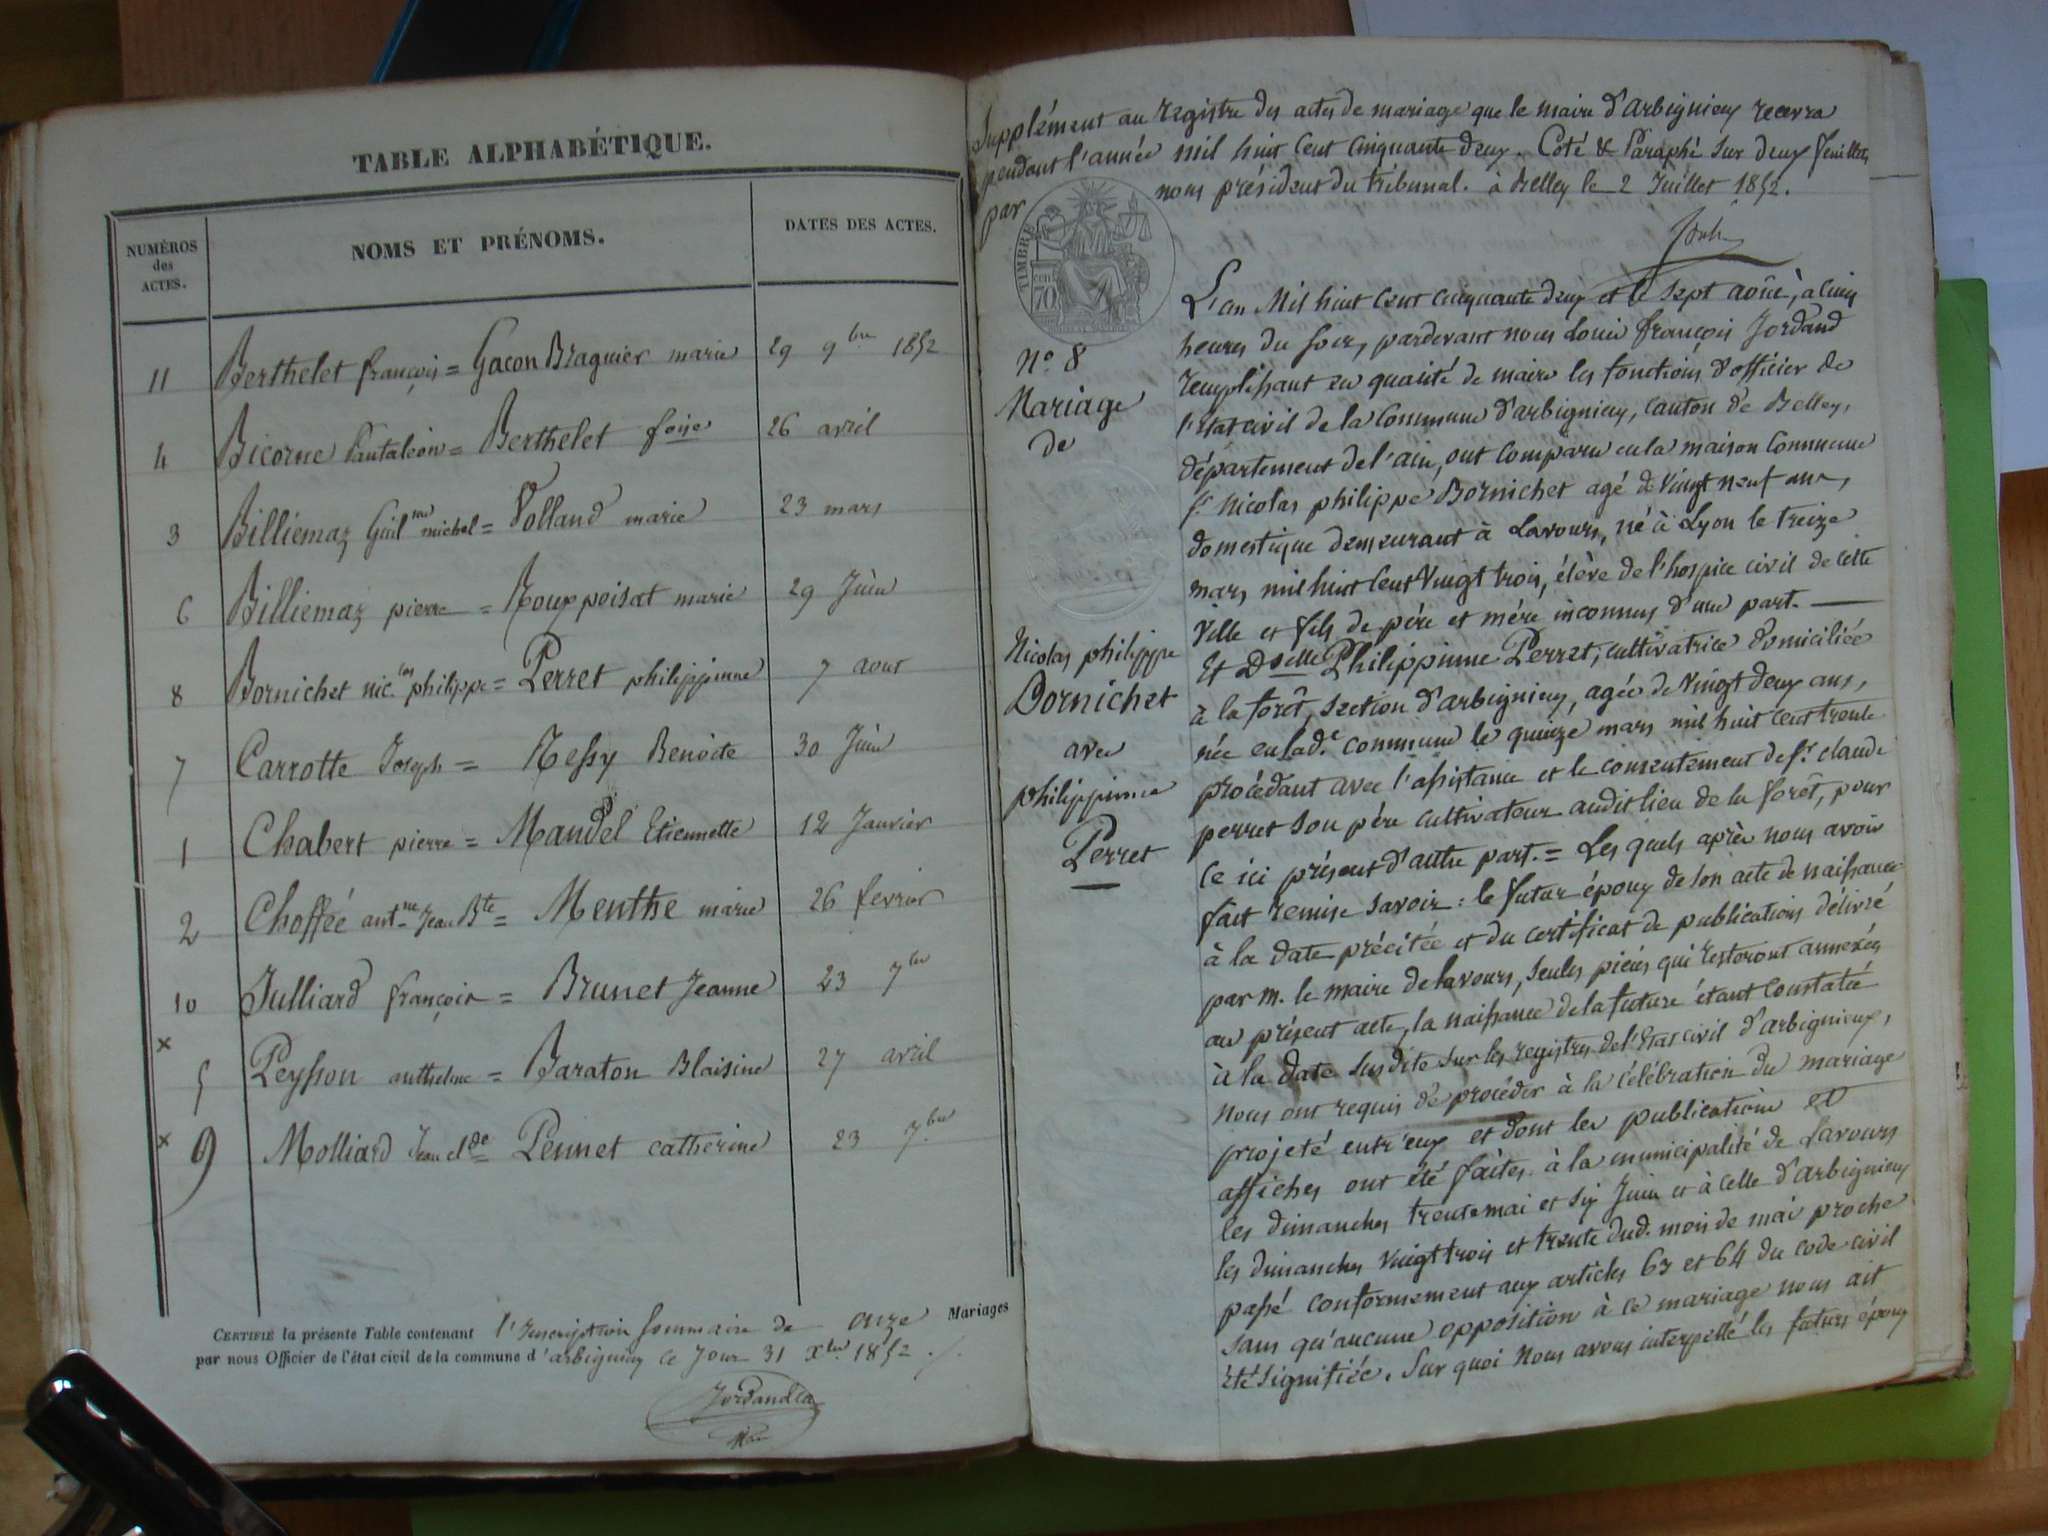 TABLE ALPHABÉTIQUE.
NUMÉROS des ACTES.
NOMS ET PRÉNOMS.
DATES DES ACTES.
11 Berthelet françois = Gacon Braguier marie 29 9bre 1852
4 Bicorne Pantaléon = Berthelet foise 26 avril
3 Billiemaz Guilme michel = Volland marie 23 mars
6 Billiemaz pierre = Rouxpoisat marie 29 Juin
8 Bornichet nic.las philippe = Perret philippinne 7 aout
7 Carrotte Joseph = Ressy Benoite 30 Juin
1 Chabert pierre = Mandel Etiennette 12 Janvier
2 Choffée antne Jean Bte = Menthe marie 26 fevrier
10 Julliard françois = Brunet Jeanne 23 7bre
x
5 Peysson anthelme = Baraton Blaisine 27 avril
x 9 Molliard Jean clde = Pennet catherine 23 7bre
CERTIFIÉ la présente Table contenant l'Inscription sommaire de onze Mariages
par nous Officier de l'état civil de la commune d'arbignieu ce Jour 31 Xbre 1852 ./.
Supplément au registre des actes de mariage que le maire d'arbignieu recevra
pendant l'année mil huit cent cinquante deux. Coté & Paraphé sur deux feuillets
par nous président du tribunal. à Belley le 2 Juillet 1852.
TIMBRE
70
L'an Mil huit cent cinquante deux et le sept août, à cinq
heures du soir, pardevant nous Louis françois Jordand
remplissant en qualité de maire les fonctions d'officier de
l'Etat civil de la Commune d'arbignieu, canton de Belley,
département de l'ain, ont comparu en la maison Commune
sr. Nicolas philippe Bornichet agé de vingt neuf ans,
domestique demeurant à Lavours, né à Lyon le treize
mars mil huit cent vingt trois, élève de l'hospice civil de cette
ville et fils de père et mère inconnus d'une part.
Et Dselle Philippinne Perret, cultivatrice domiciliée
à la forêt, section d'arbignieu, agée de vingt deux ans,
née en lad.e commune le quinze mars mil huit cent trente
procédant avec l'assistance et le consentement de sr. claude
perret son père cultivateur audit lieu de la forêt, pour
ce ici présent d'autre part. = Les quels après nous avoir
fait remise savoir : le futur époux de son acte de naissance
à la date précitée et du certificat de publications délivré
par m. le maire de lavours, seules pièces qui resteront annexées
au présent acte, la naissance de la future étant constatée
à la date susdite sur les registres de l'Etat civil d'arbignieux,
nous ont requis de procéder à la célébration du mariage
projeté entr'eux et dont les publications et
affiches ont été faites à la municipalité de Lavours
les dimanches trente mai et six Juin et à celle d'arbignieu
les dimanches vingt trois et trente dud. mois de mai proche
passé conformement aux articles 63 et 64 du code civil
sans qu'aucune opposition à ce mariage nous ait
été signifiée. Sur quoi nous avons interpellé les futurs époux
N.o 8
Mariage
de
Nicolas philippe
Bornichet
avec
philippinne
Perret